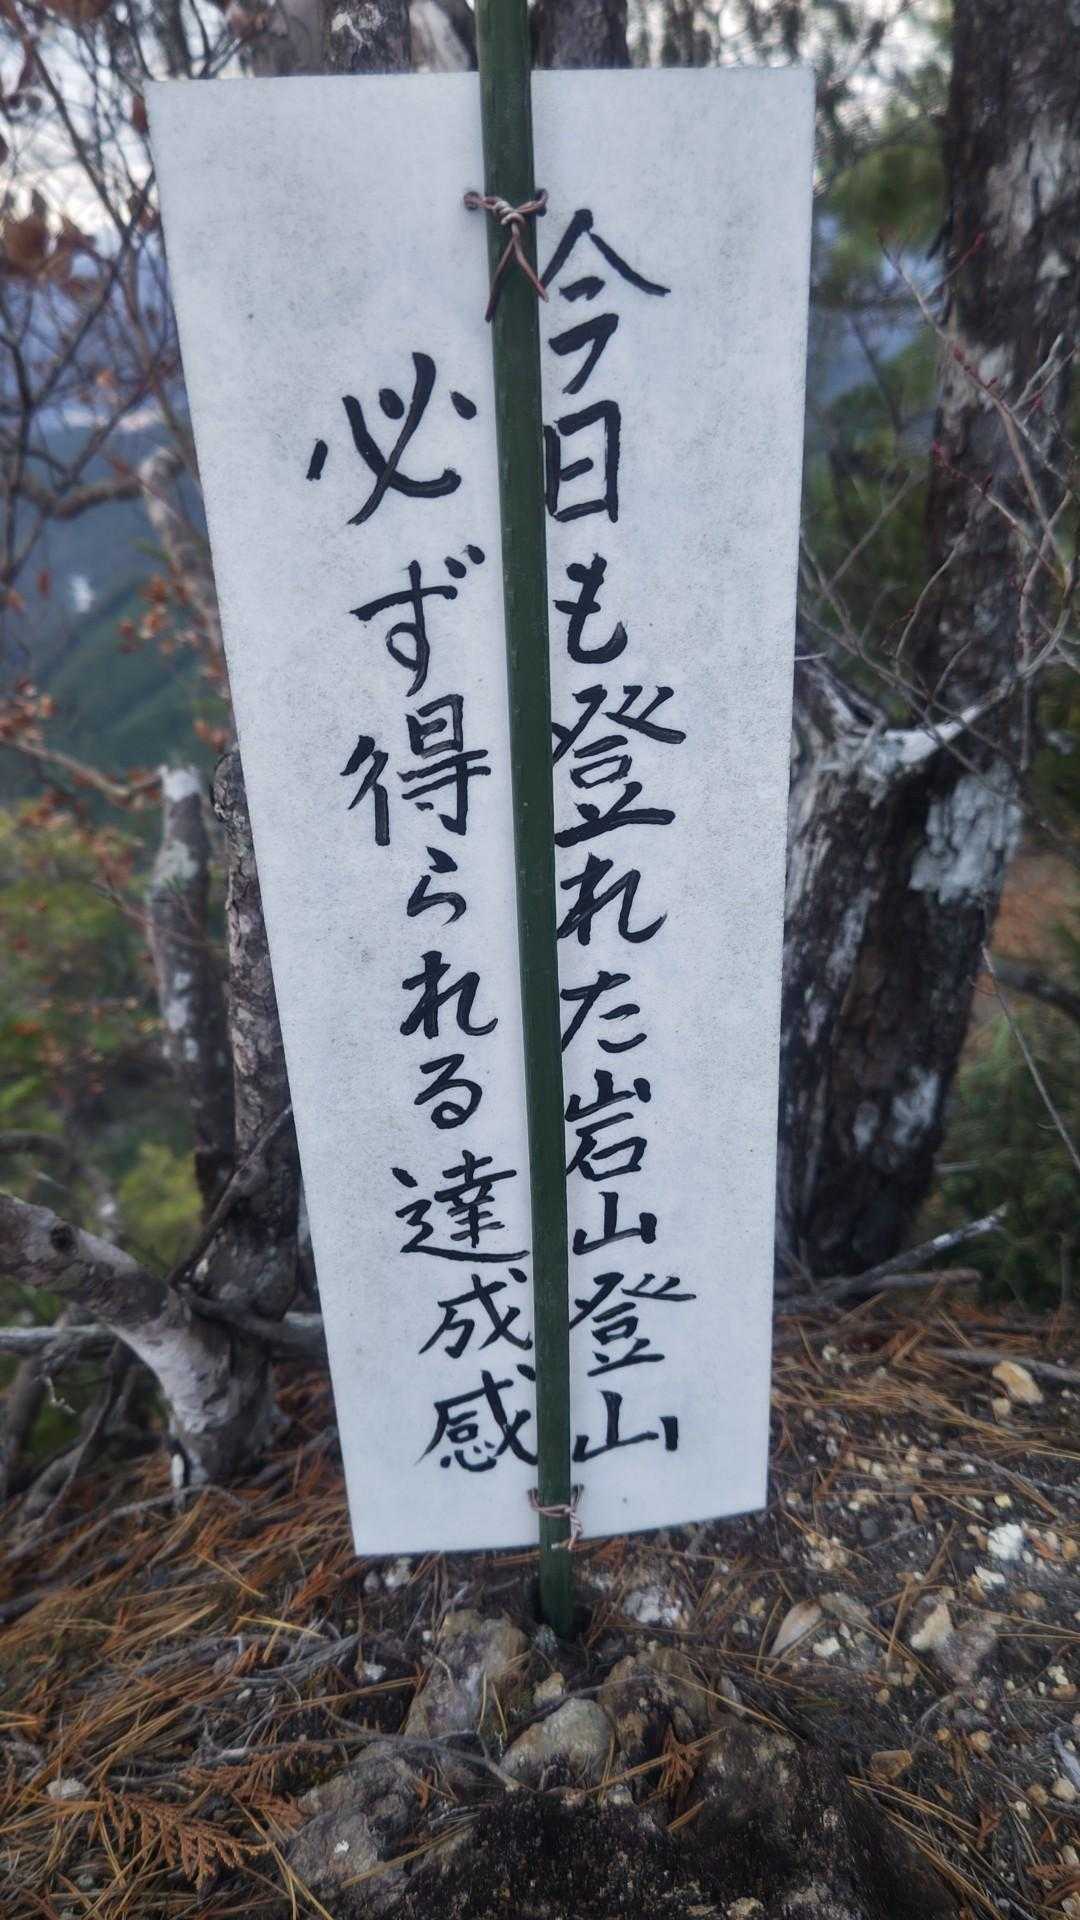 今日も登れた岩山登山
必ず得られる達成感